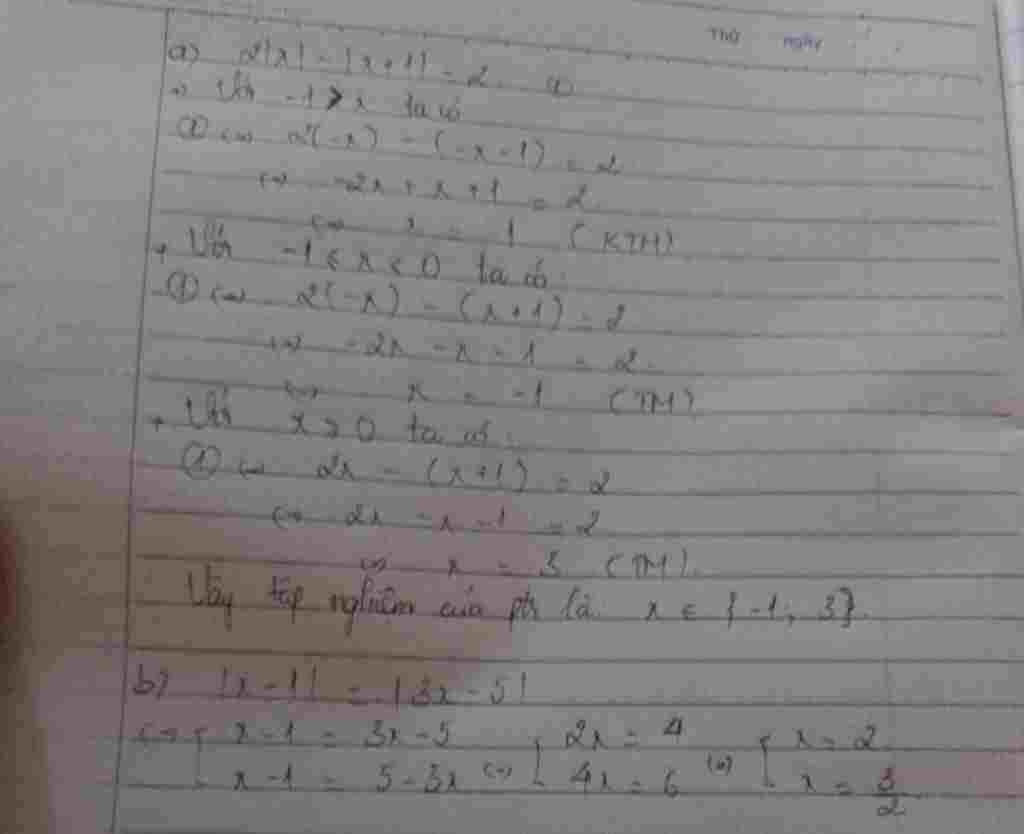 Thứ ngày
a) 2|x| - |x+1| = 2 ①
+ Với -1 > x ta có
① <=> 2(-x) - (-x-1) = 2
<=> -2x + x + 1 = 2
<=> x = 1 (KTM)
+ Với -1 ≤ x < 0 ta có:
① <=> 2(-x) - (x+1) = 2
<=> -2x - x - 1 = 2
<=> x = -1 (TM)
+ Với x > 0 ta có:
① <=> 2x - (x+1) = 2
<=> 2x - x - 1 = 2
<=> x = 3 (TM).
Vậy tập nghiệm của ptr là x ∈ {-1; 3}.
b) |x-1| = |3x-5|
<=> [ x-1 = 3x-5 [ 2x = 4 [ x = 2
x-1 = 5-3x <=> 4x = 6 <=> x = 3/2